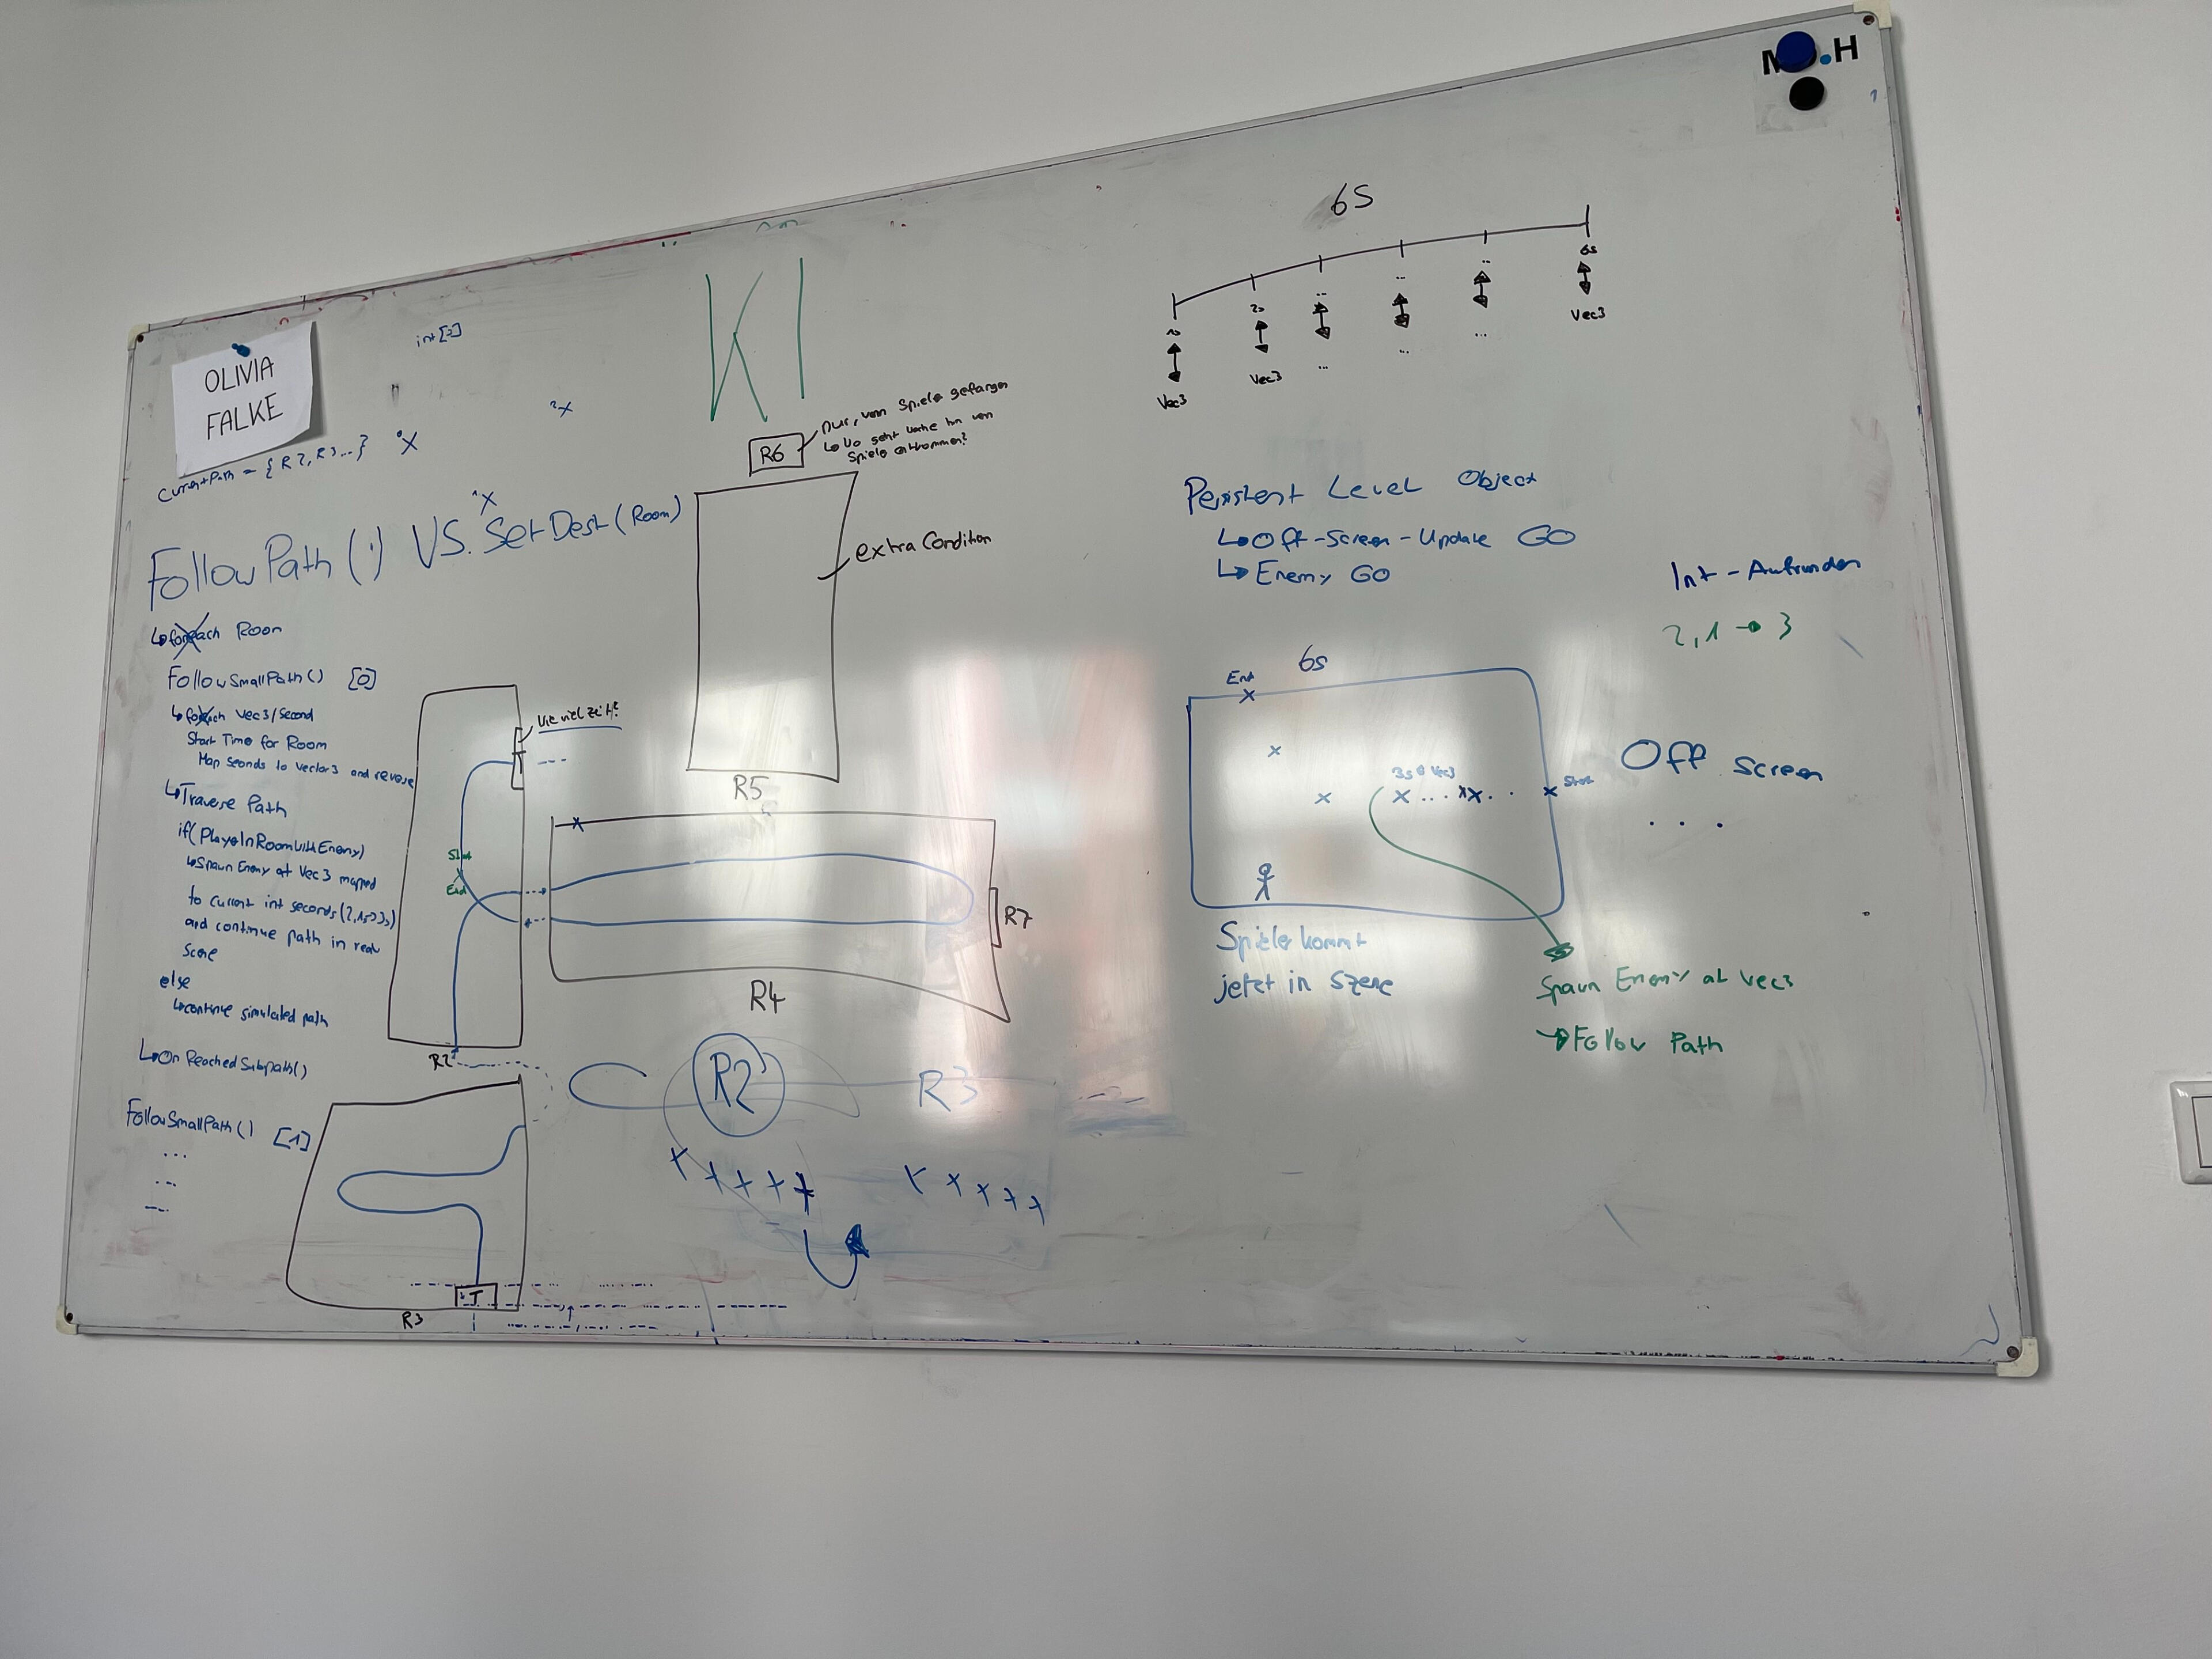 OLIVIA
FALKE
int[2]
KI
6S
.H
2x
CurrentPath = {R2, R3...}
x
1x
FollowPath(.) VS. SetDest(Room)
R6
nur, wenn Spieler gefangen
extra Condition
R5
6s
Vec3
Vec3
Vec3
2s
Persistent Level Object
Off-Screen-Update GO
Enemy GO
Int-Aufrunden
2,1 → 3
foreach Room
FollowSmallPath() [0]
foreach Vec3/Second
Start Time for Room
Map Seconds to Vector3 and reverse
Traverse Path
if(PlayerInRoomWithEnemy)
Spawn Enemy at Vec3 mapped
to current int seconds
and continue path in real
Scene
else
continue simulated path
OnReachedSubpath()
FollowSmallPath() [1]
...
Wie viel Zeit?
Start
End
R2
R7
R4
R2
R3
T
R3
6s
End
Start
3s Vec3
Off Screen
...
Spieler kommt
jetzt in Szene
Spawn Enemy at Vec3
Follow Path